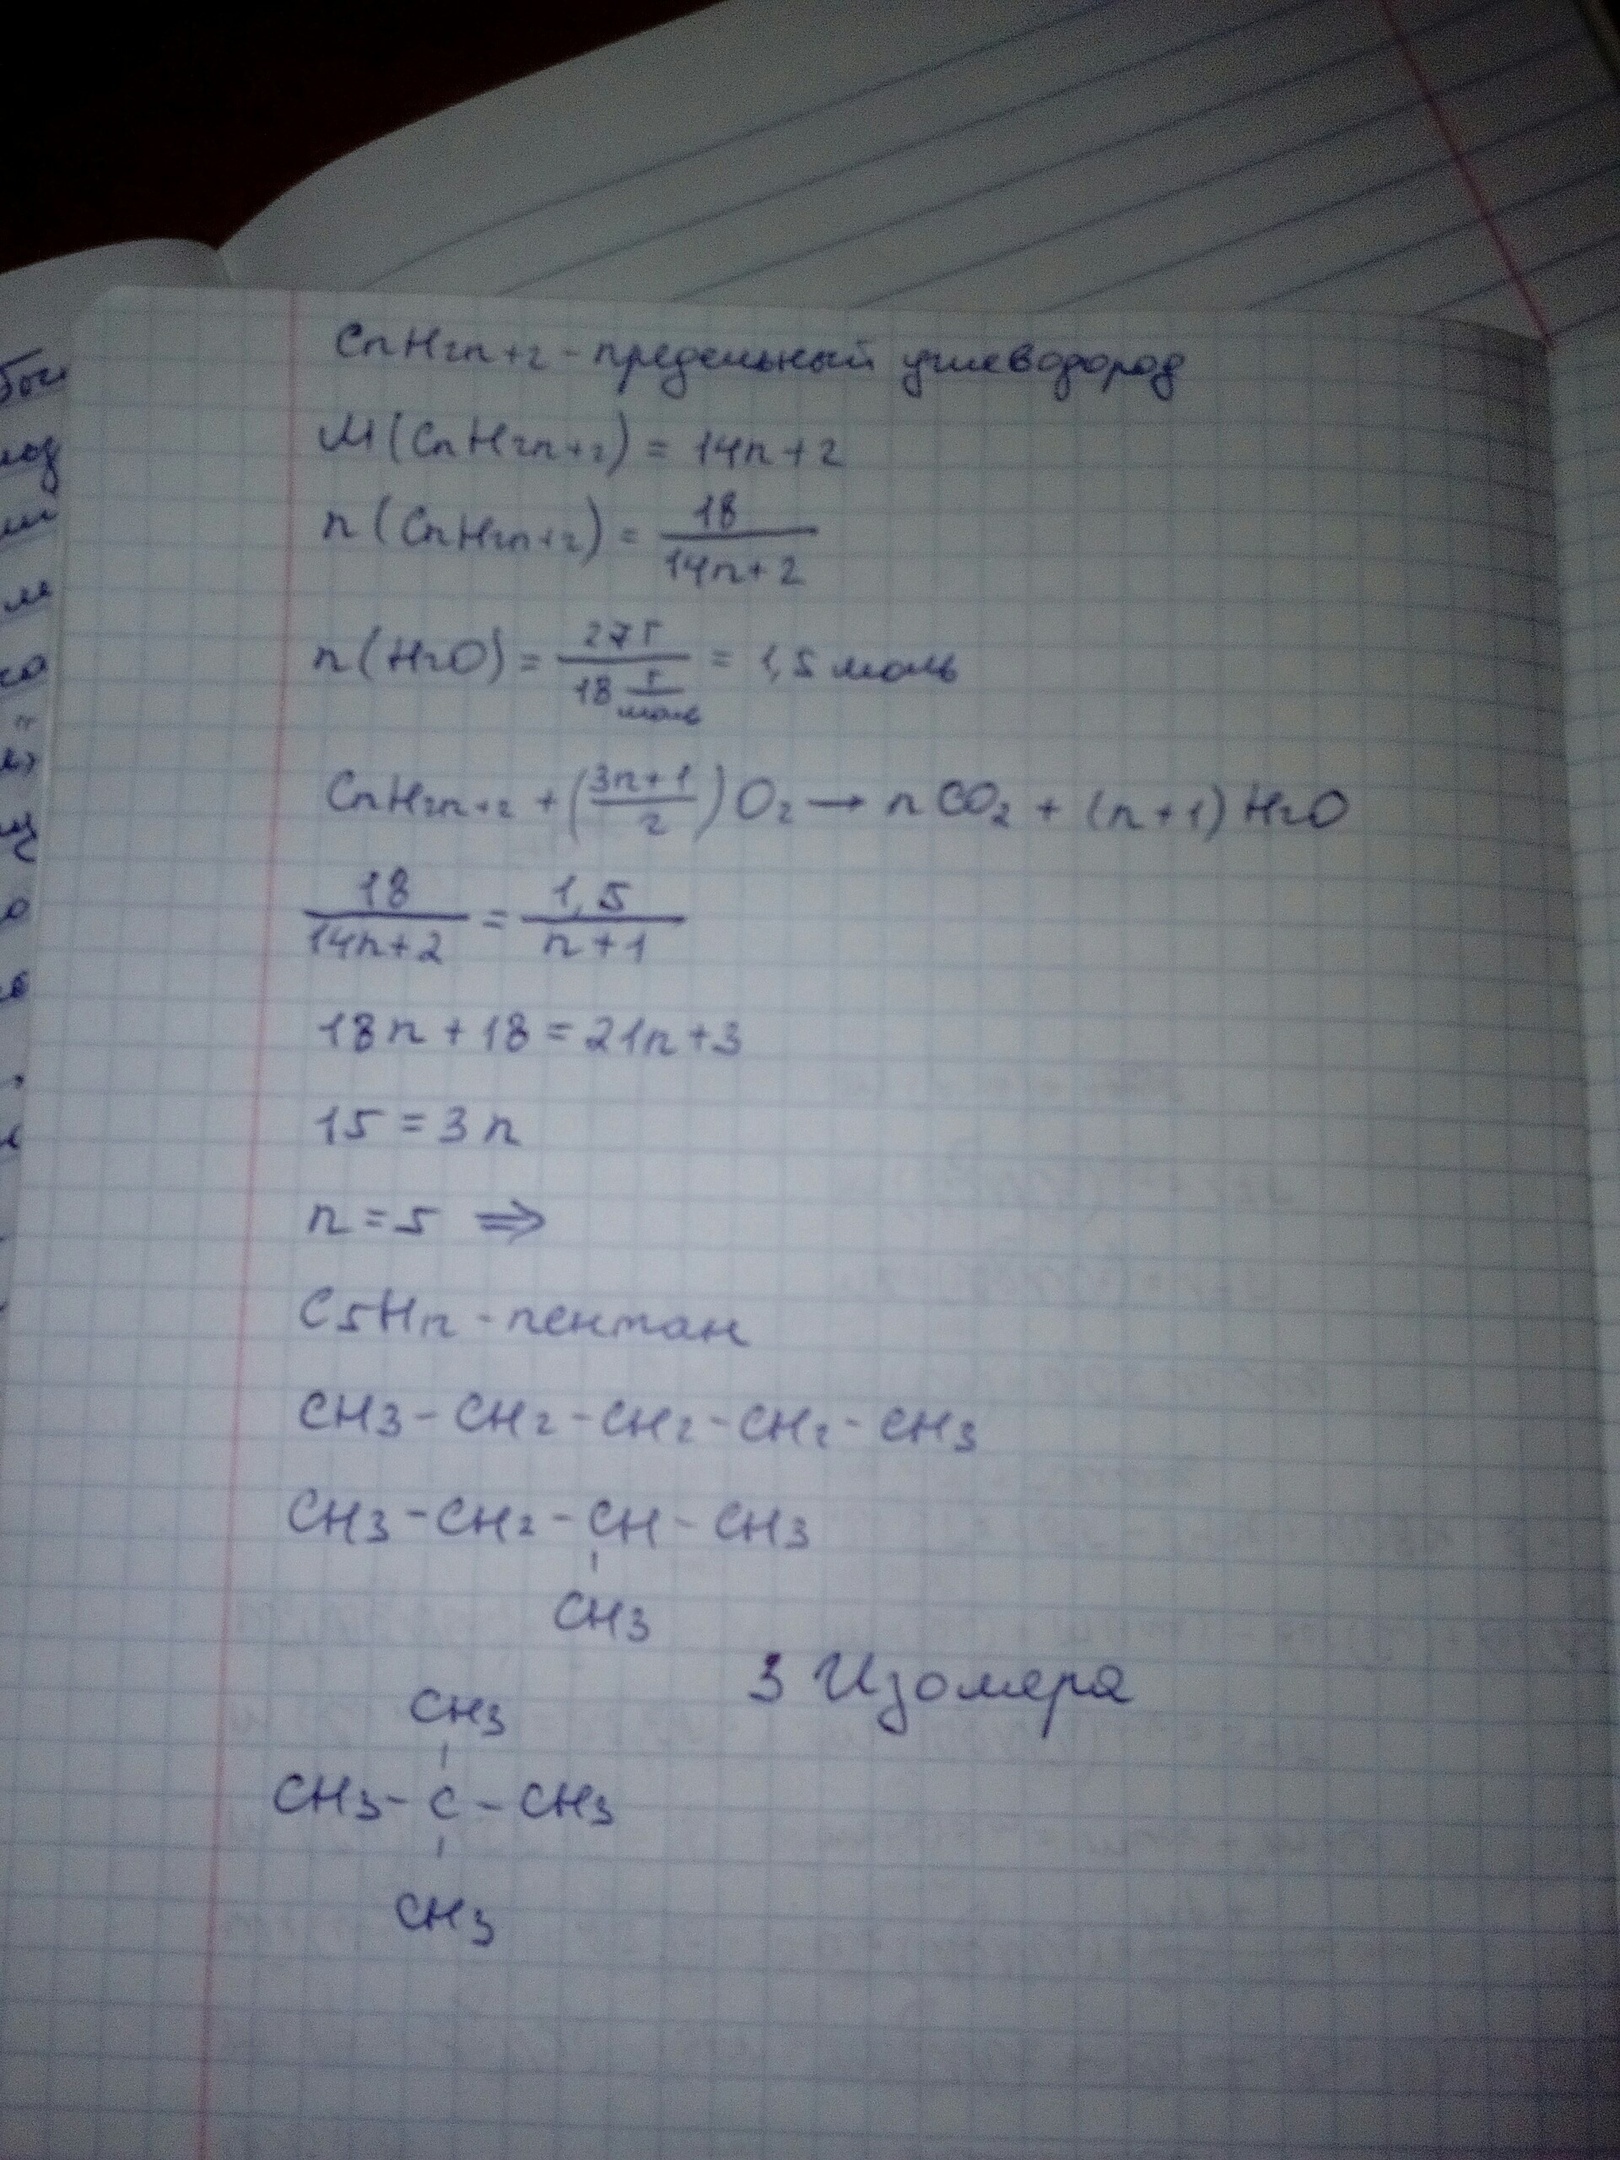 CnH2n+2 - предельный углеводород
M(CnH2n+2) = 14n+2
n(CnH2n+2) = 18/(14n+2)
n(H2O) = 27г/(18 г/моль) = 1,5 моль
CnH2n+2 + ((3n+1)/2)O2 → nCO2 + (n+1)H2O
18/(14n+2) = 1,5/(n+1)
18n + 18 = 21n + 3
15 = 3n
n = 5 ⇒
C5H12 - пентан
CH3 - CH2 - CH2 - CH2 - CH3
CH3 - CH2 - CH - CH3
CH3
3 Изомера
CH3
CH3 - C - CH3
CH3